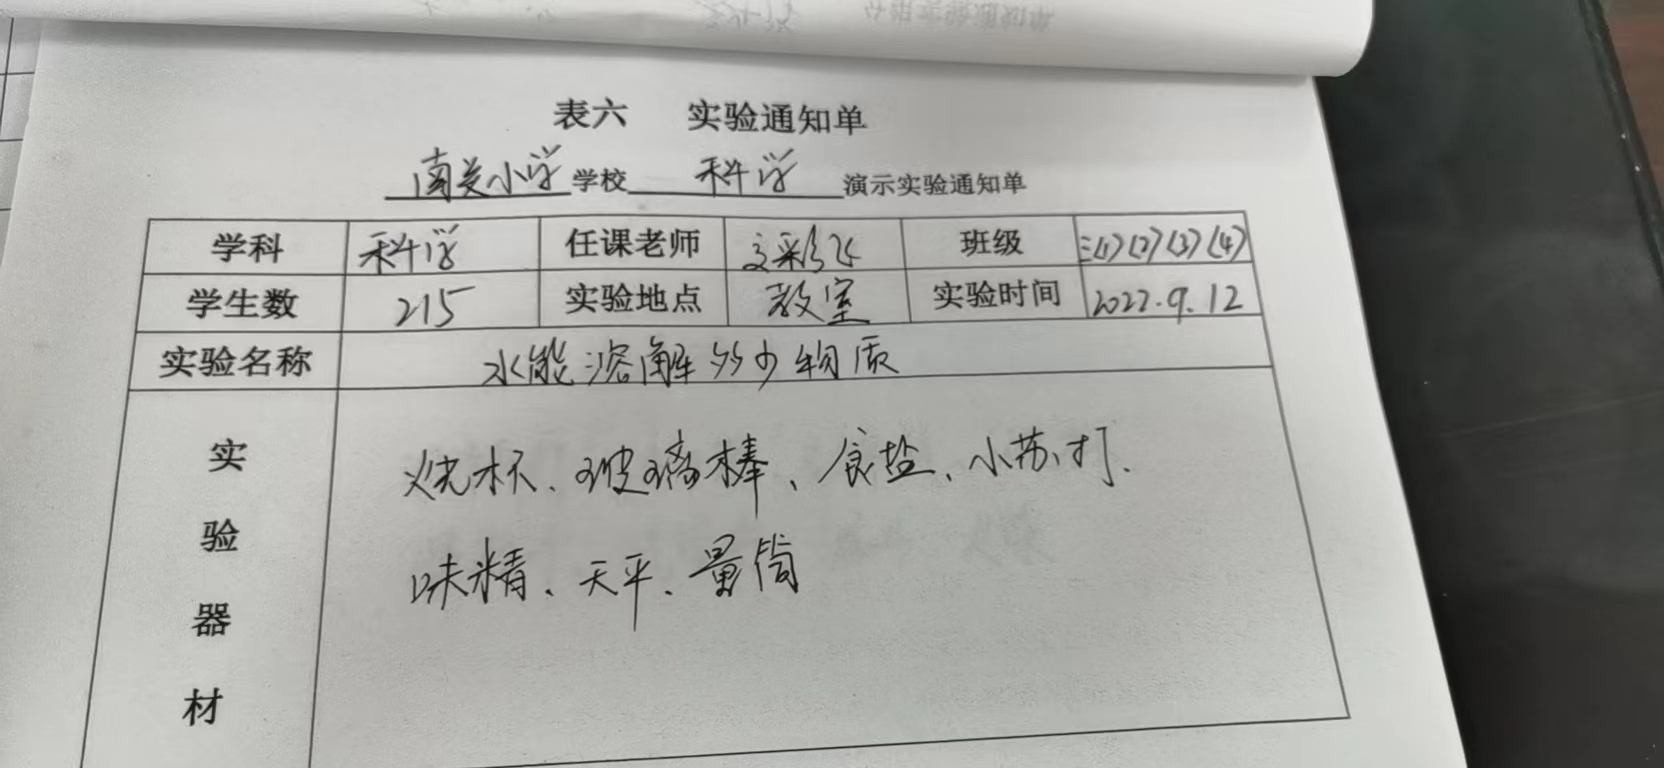 表六 实验通知单
南关小学学校 科学 演示实验通知单
学科 科学 任课老师 文彩飞 班级 三(1)(2)(3)(4)
学生数 215 实验地点 教室 实验时间 2022.9.12
实验名称 水能溶解多少物质
实验器材
烧杯、玻璃棒、食盐、小苏打、
味精、天平、量筒